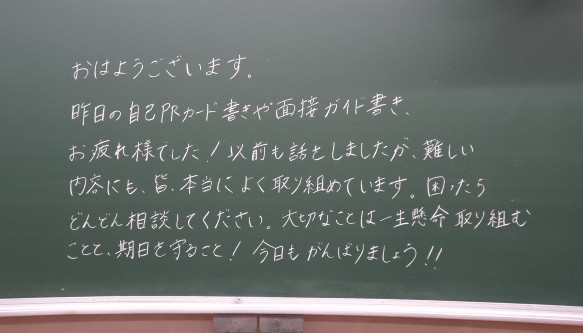 おはようございます。
昨日の自己PRカード書きや面接ガイド書き、
お疲れ様でした!以前も話をしましたが、難しい
内容にも、皆、本当によく取り組めています。困ったら
どんどん相談してください。大切なことは一生懸命取り組む
ことと、期日を守ること!今日もがんばりましょう!!